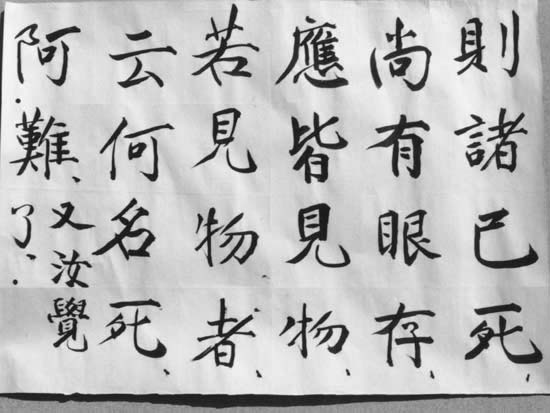 則諸已死、
尚有眼存、
應皆見物、
若見物者、
云何名死、
阿難、又汝覺
了、